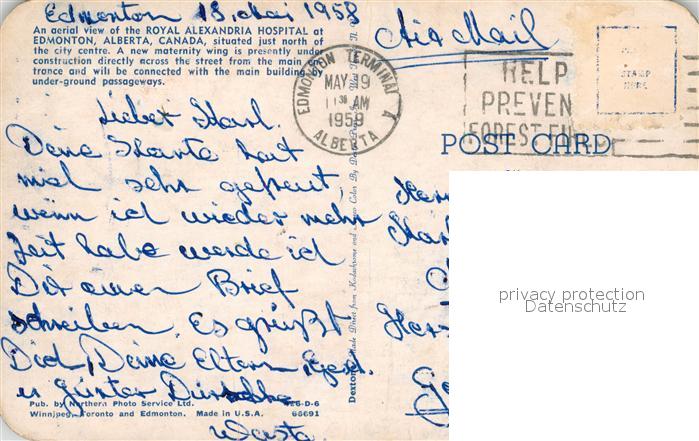 Edmonton 18. Mai 1958
An aerial view of the ROYAL ALEXANDRIA HOSPITAL at
EDMONTON, ALBERTA, CANADA, situated just north of
the city centre. A new maternity wing is presently under
construction directly across the street from the main en-
trance and will be connected with the main building by
under-ground passageways.
Air Mail
EDMONTON TERMINAL A
MAY 19
11 30 AM
1958
ALBERTA
HELP
PREVEN
FOREST FI
STAMP
HERE
POST CARD
Lieber Karl.
Deine Karte hat
mich sehr gefreut,
wenn ich wieder mehr
Zeit habe werde ich
Dir einen Brief
schreiben. Es grüßt
Dich, Deine Eltern,
u Günter
Pub. by Northern Photo Service Ltd.
Winnipeg, Toronto and Edmonton. Made in U.S.A. 66691
privacy protection
Datenschutz